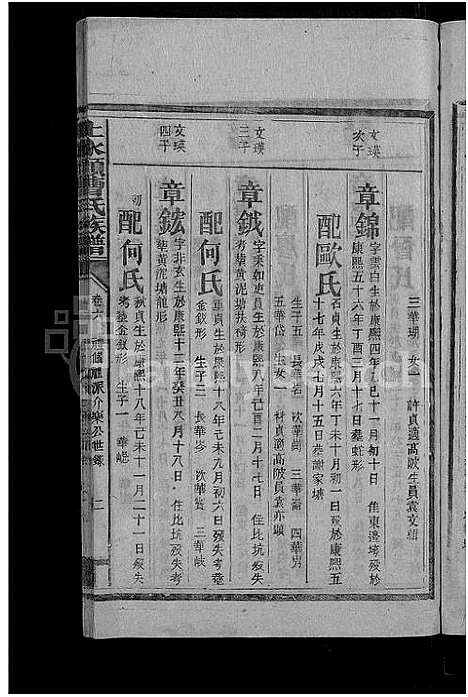 三華瑚 女一 許貞適高陂生員袁文緝
文瑛
次子
章錦
字雲白生於康熙四年乙巳十一月初十日 住東邊塆歿於
康熙五十六年丁酉三月十七日塟蛇形
配歐氏
石貞生於康熙六年丁未十月初一日歿於康熙五
十七年戊戌七月十五日塟謝家塘
生子五 長華岩 次華 三華 四華
五華岱 生女一 材貞適高陂員袁亦
文瑛
三子
章鉞
字秉如 生於康熙八年己酉二月十七日 住比坑歿失
考塟黃泥塘扶椅形
配何氏
貞生於康熙十八年己未九月初六日歿失考塟
金釵形 生子三 長華岑 次華 三華
文瑛
四子
章鋐
字非玄生於康熙十二年癸丑八月十八日 住比坑歿失考
塟黃泥塘龍形
初
配何氏
貞生於康熙十八年己未十一月二十一日歿失
考塟金釵形 生子一 華
上水頭曹氏族譜
卷六 派介樂公世錄 二